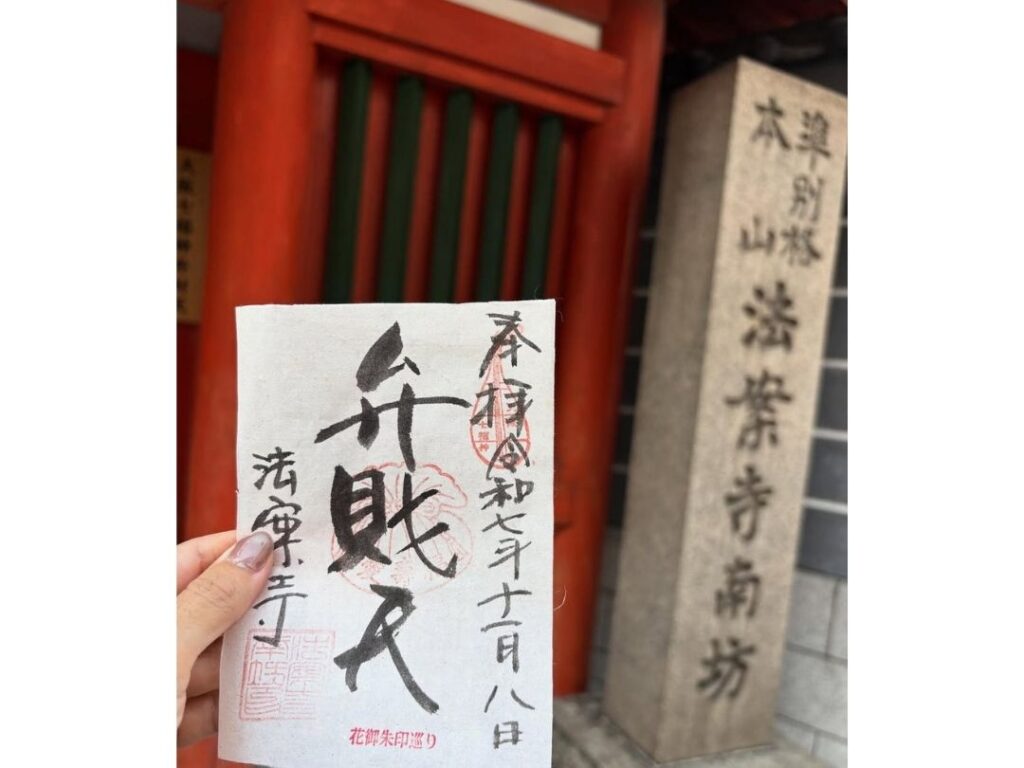 奉拝 令和七年十一月八日
弁財天
法案寺
花御朱印巡り
準別格
本山
法案寺南坊
七福神